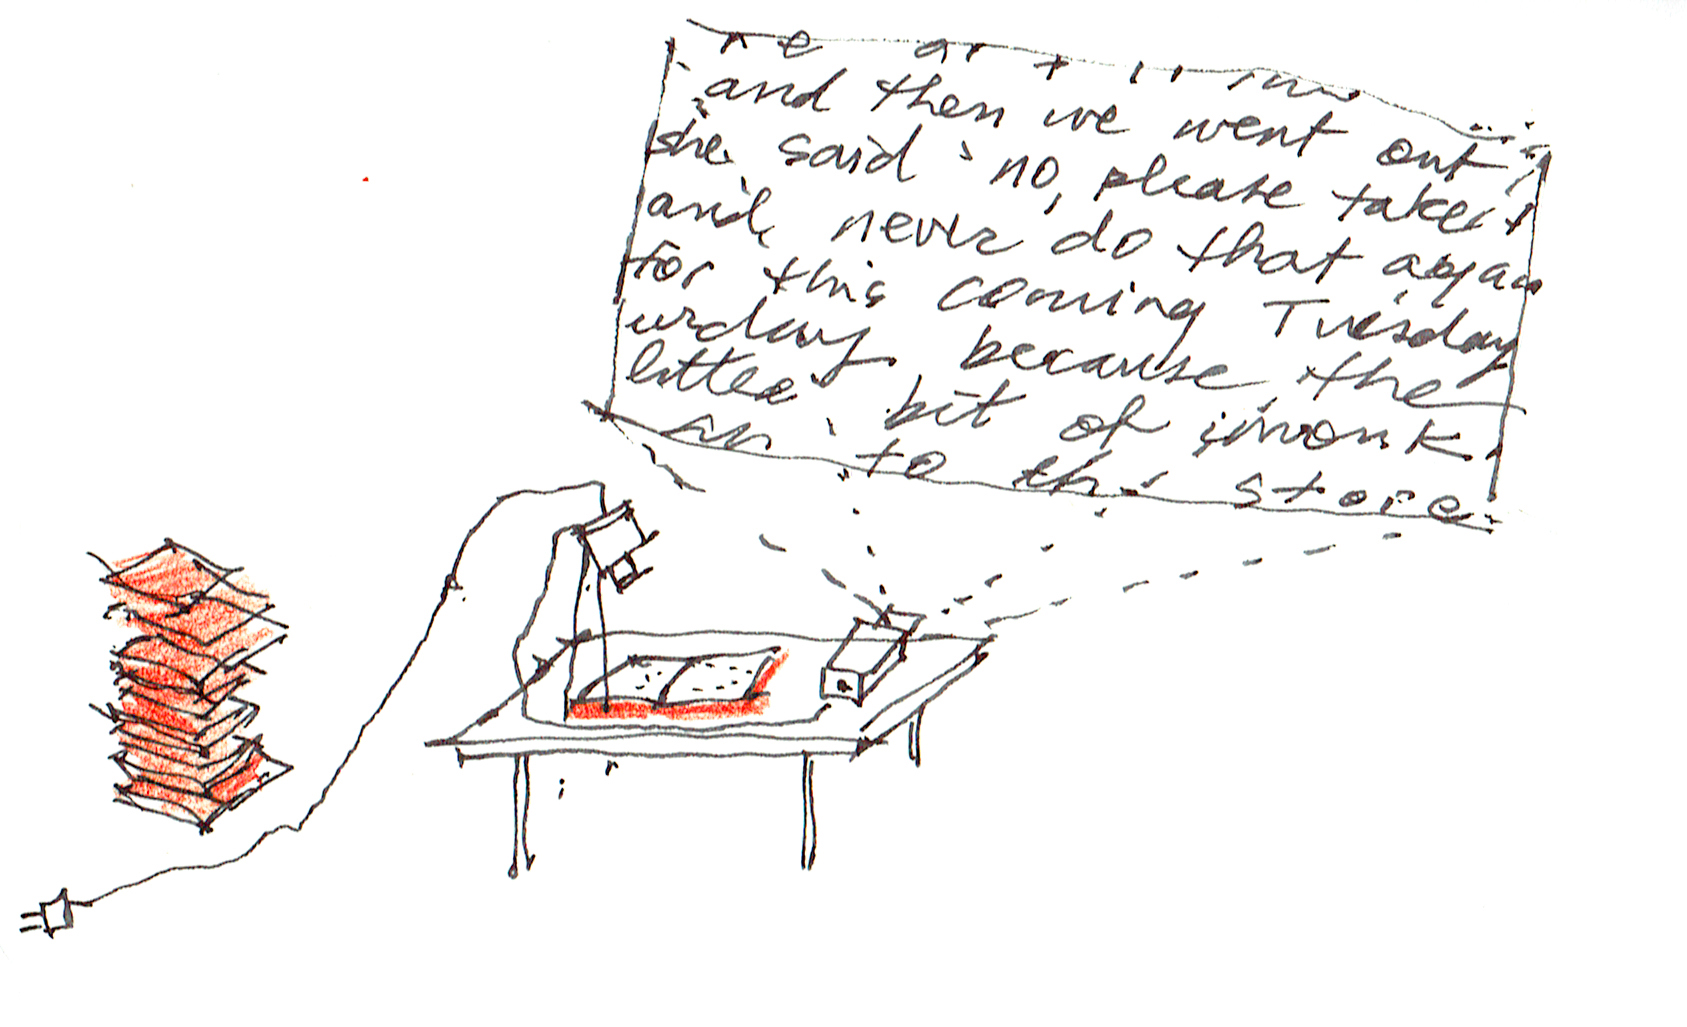 and then we went out,
she said no, please take it
and never do that again
for this coming Tuesday
urday because the
little bit of
to the store